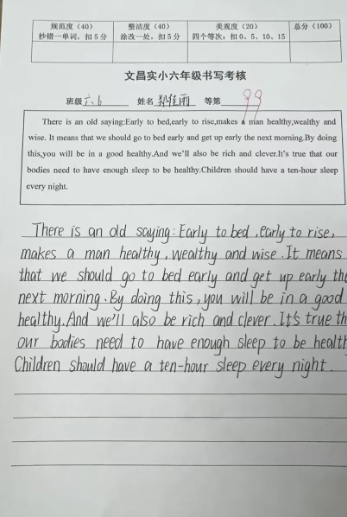 规范度（40） 整洁度（40） 美观度（20） 总分（100）
抄错一单词，扣5分 涂改一处，扣5分 四个等次：扣0、5、10、15
文昌实小六年级书写考核
班级 六、6 姓名 雨 等第 99
There is an old saying:Early to bed,early to rise,makes a man healthy,wealthy and
wise. It means that we should go to bed early and get up early the next morning.By doing
this,you will be in a good healthy.And we'll also be rich and clever.It's true that our
bodies need to have enough sleep to be healthy.Children should have a ten-hour sleep
every night.
There is an old saying: Early to bed ,early to rise,
makes a man healthy , wealthy and wise . It means
that we should go to bed early and get up early the
next morning . By doing this , you will be in a good
healthy. And we'll also be rich and clever . It's true th
our bodies need to have enough sleep to be health
Children should have a ten-hour sleep every night .